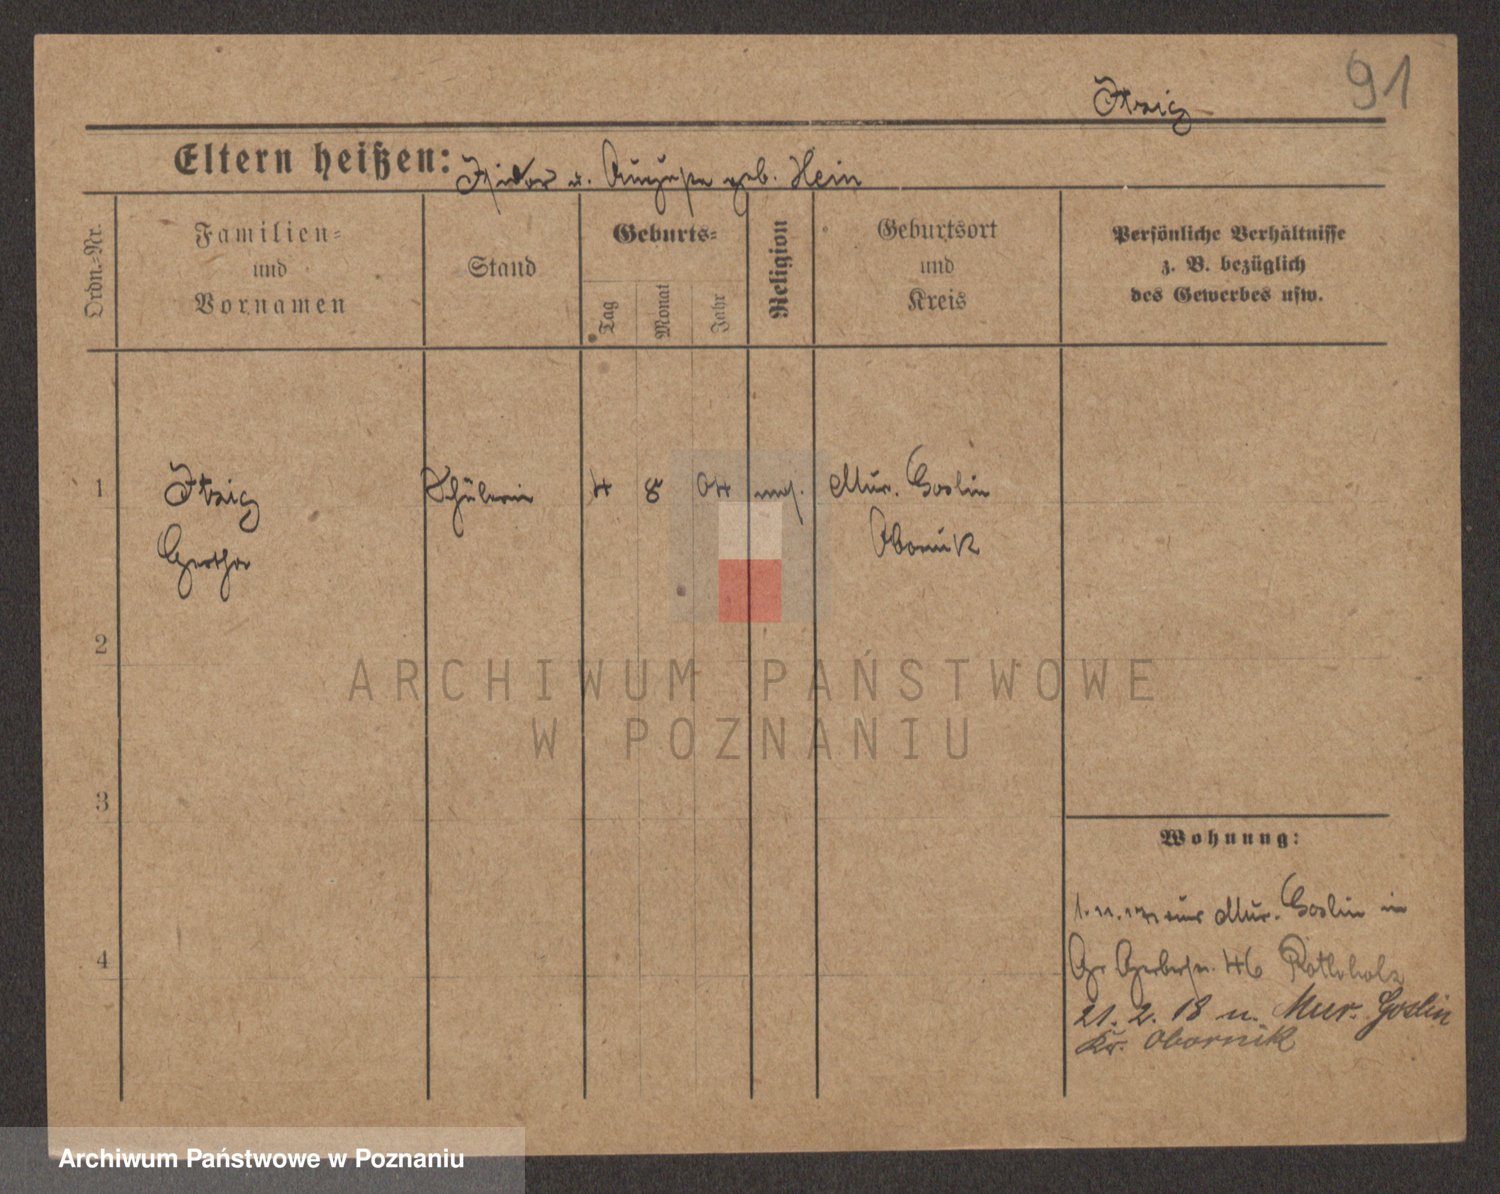 91
Itzig
Eltern heißen: Isidor u. Auguste geb. Hein
Ordn.-Nr.
Familien-
und
Vornamen
Stand
Geburts-
Tag
Monat
Jahr
Religion
Geburtsort
und
Kreis
Persönliche Verhältnisse
z. B. bezüglich
des Gewerbes usw.
1 Itzig Schülerin 4 8 04 mos. Mur. Goslin
Gertha Obornik
2
3
4
ARCHIWUM PAŃSTWOWE
W POZNANIU
Wohnung:
1.11.17 aus Mur. Goslin in
Gr Gerberstr. 46 Rothholz
21. 2. 18 n. Mur. Goslin
Kr. Obornik
Archiwum Państwowe w Poznaniu